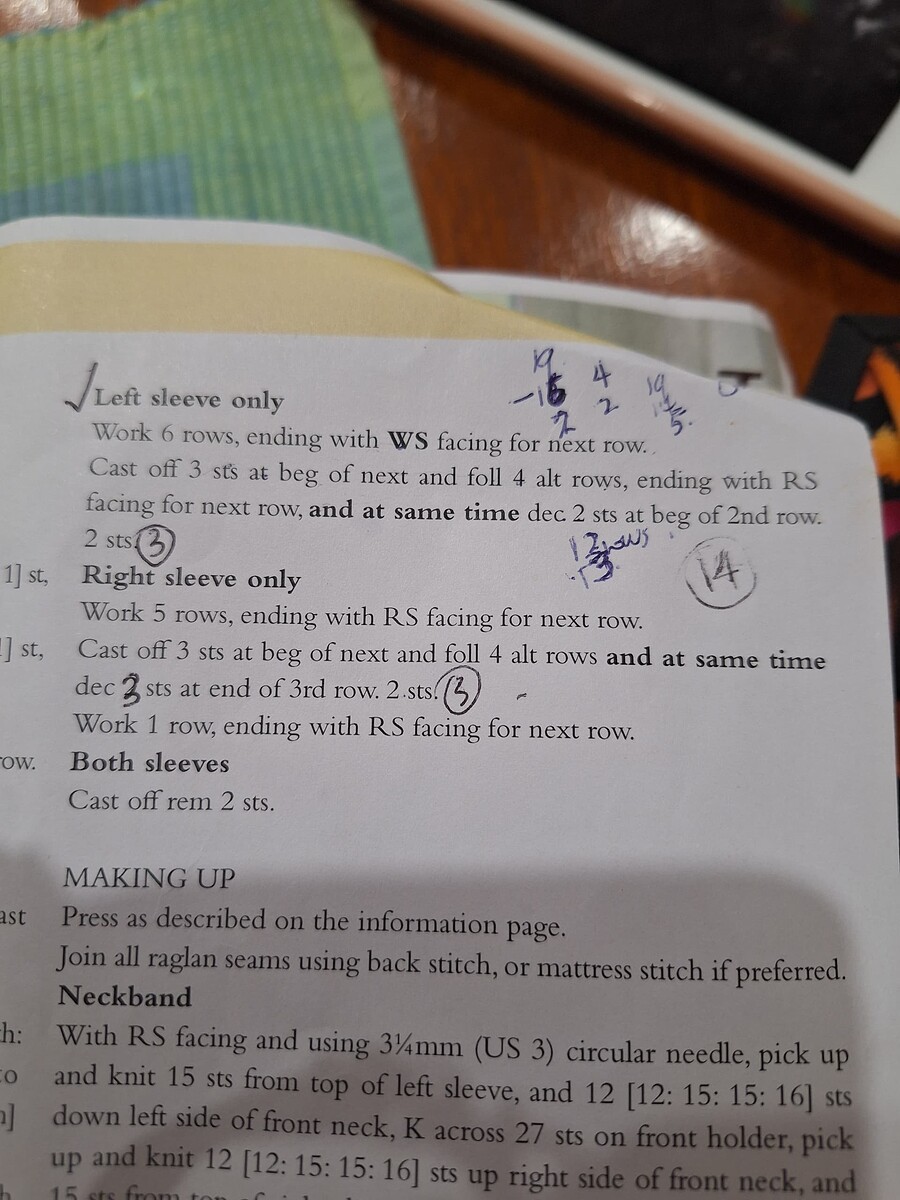 19 4 19
-16 2
2 5.
Left sleeve only
Work 6 rows, ending with WS facing for next row.
Cast off 3 sts at beg of next and foll 4 alt rows, ending with RS
facing for next row, and at same time dec 2 sts at beg of 2nd row.
2 sts. 3 12 rows 14
13
1] st, Right sleeve only
Work 5 rows, ending with RS facing for next row.
] st, Cast off 3 sts at beg of next and foll 4 alt rows and at same time
dec 3 sts at end of 3rd row. 2 sts. 3
Work 1 row, ending with RS facing for next row.
row. Both sleeves
Cast off rem 2 sts.
MAKING UP
ast Press as described on the information page.
Join all raglan seams using back stitch, or mattress stitch if preferred.
Neckband
h: With RS facing and using 3¼mm (US 3) circular needle, pick up
and knit 15 sts from top of left sleeve, and 12 [12: 15: 15: 16] sts
] down left side of front neck, K across 27 sts on front holder, pick
up and knit 12 [12: 15: 15: 16] sts up right side of front neck, and
15 sts from top of